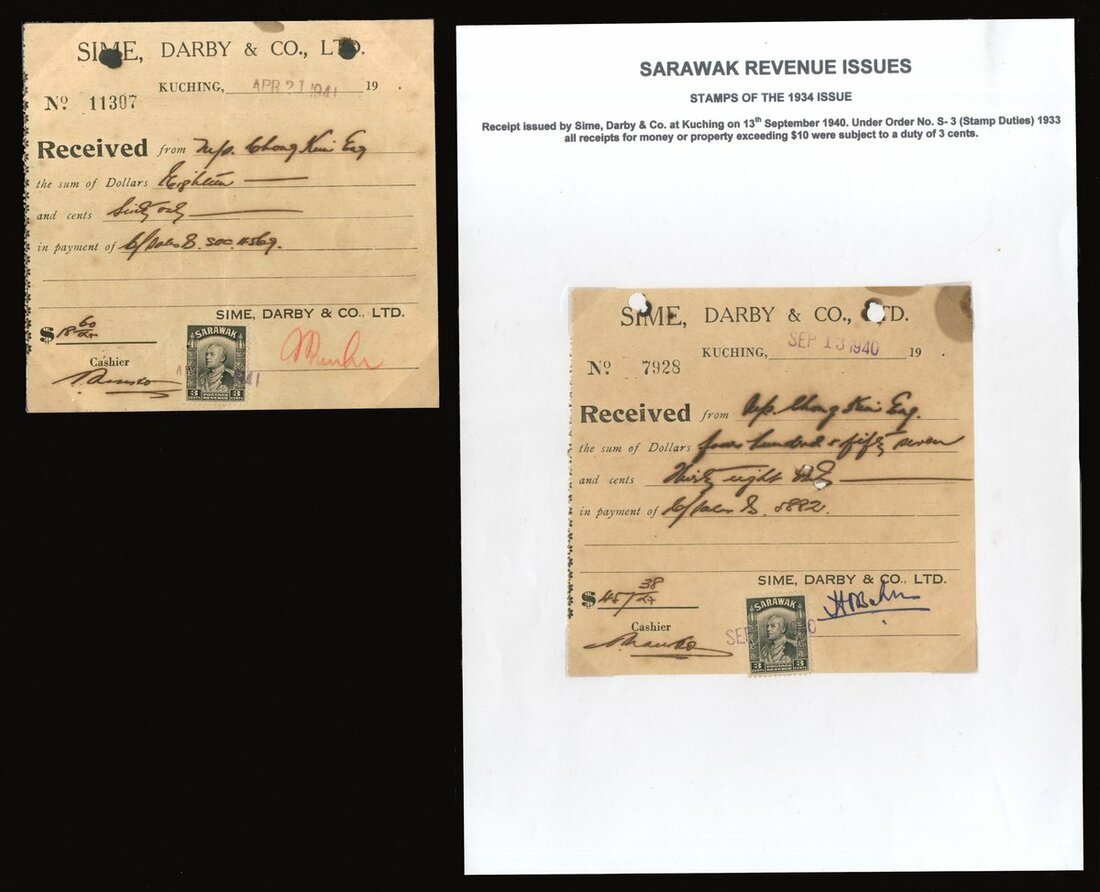 SIME, DARBY & CO., LTD.
KUCHING, APR 21 1941 19 .
No 11307
Received from Chong Kui Esq
the sum of Dollars Eighteen
and cents Sixty only
in payment of
SIME, DARBY & CO., LTD.
$ 18 60
Cashier
SARAWAK
3 CENTS POSTAGE REVENUE 3 CENTS
SARAWAK REVENUE ISSUES
STAMPS OF THE 1934 ISSUE
Receipt issued by Sime, Darby & Co. at Kuching on 13th September 1940. Under Order No. S- 3 (Stamp Duties) 1933
all receipts for money or property exceeding $10 were subject to a duty of 3 cents.
SIME, DARBY & CO., LTD.
KUCHING, SEP 13 1940 19 .
No 7928
Received from Chong Kui Esq.
the sum of Dollars four hundred & fifty seven
and cents Thirty eight
in payment of 5882.
SIME, DARBY & CO., LTD.
$ 457 38
Cashier
SEP
SARAWAK
3 CENTS POSTAGE REVENUE 3 CENTS